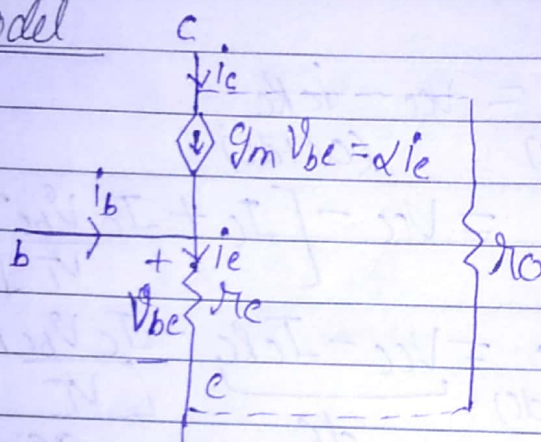 odel
C
ic
gm Vbe = αie
ib
b
+ ie
Vbe re
ro
-
e